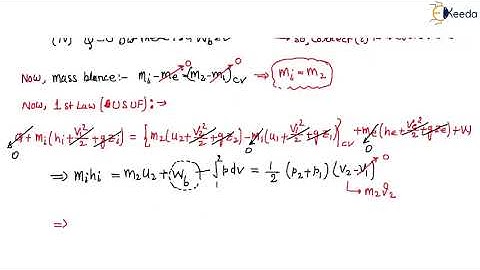 Keeda
Now, mass blance:- mᵢ - me = (m₂ - m₁)cv ⇒ mᵢ = m₂
0 0
Now, 1st Law (USUF):→
Q + mᵢ(hᵢ + Vᵢ²/2 + gzᵢ) = [m₂(u₂ + V₂²/2 + gz₂) - m₁(u₁ + V₁²/2 + gz₁)]cv + me(he + Ve²/2 + gze) + W
0 0 0
⇒ mᵢhᵢ = m₂u₂ + Wb → ∫₁² pdv = 1/2 (p₂+p₁) (V₂-V₁) 0
↳ m₂v₂
⇒